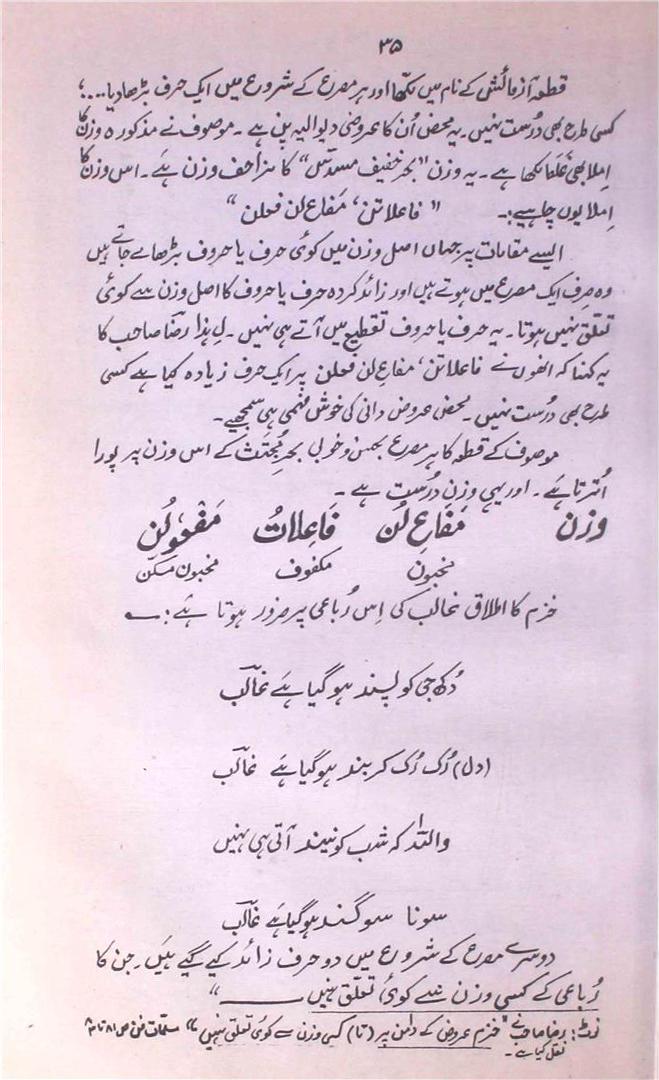 ۳۵
قطعۂ آزمائش کے نام میں لکھا اور ہر مصرع کے شروع میں ایک حرف بڑھا دیا....؛
کسی طرح بھی دُرست نہیں۔ یہ محض اُن کا عروضی دیوالیہ پن ہے۔ موصوف نے مذکورہ وزن کا
اِملا بھی غلط لکھا ہے۔ یہ وزن "بحرِ خفیف مسدّس" کا مزاحف وزن ہے۔ اس وزن کا
اِملا یوں چاہیے:۔ "فاعلاتن، مَفاعِ لن فعلن"
ایسے مقامات پر جہاں اصل وزن میں کوئی حرف یا حروف بڑھائے جاتے ہیں
وہ صرف ایک مصرع میں ہوتے ہیں اور زائد کردہ حرف یا حروف کا اصل وزن سے کوئی
تعلّق نہیں ہوتا۔ یہ حرف یا حروف تقطیع میں آتے ہی نہیں۔ لہٰذا رضا صاحب کا
یہ کہنا کہ انھوں نے فاعلاتن، مفاعِ لن فعلن پر ایک حرف زیادہ کیا ہے کسی
طرح بھی دُرست نہیں۔ محض عروض دانی کی خوش فہمی ہی سمجھیے۔
موصوف کے قطعہ کا ہر مصرع بحسن و خوبی بحرِ مُجتث کے اس وزن پر پورا
اُترتا ہے۔ اور یہی وزن دُرست ہے۔
وزن مَفاعِ لُن فَاعِلاتُ مَفعولُن
مخبون مکفوف مخبون مسکّن
خزم کا اطلاق غالب کی اِس رُباعی پر ضرور ہوتا ہے:۔
دُکھ جی کو پسند ہو گیا ہے غالبؔ
(دل) رُک رُک کر بند ہو گیا ہے غالبؔ
واللہ کہ شب کو نیند آتی ہی نہیں
سونا سوگند ہو گیا ہے غالبؔ
دوسرے مصرع کے شروع میں دو حرف زائد کیے گئے ہیں۔ جن کا
رُباعی کے کسی وزن سے کوئی تعلّق نہیں۔"
نوٹ: رضا صاحب نے "خزم عروض کے دامن پر (تا) کسی وزن سے کوئی تعلق نہیں" مسلّمات فن ص ۸۱ تا
نقل کیا ہے۔